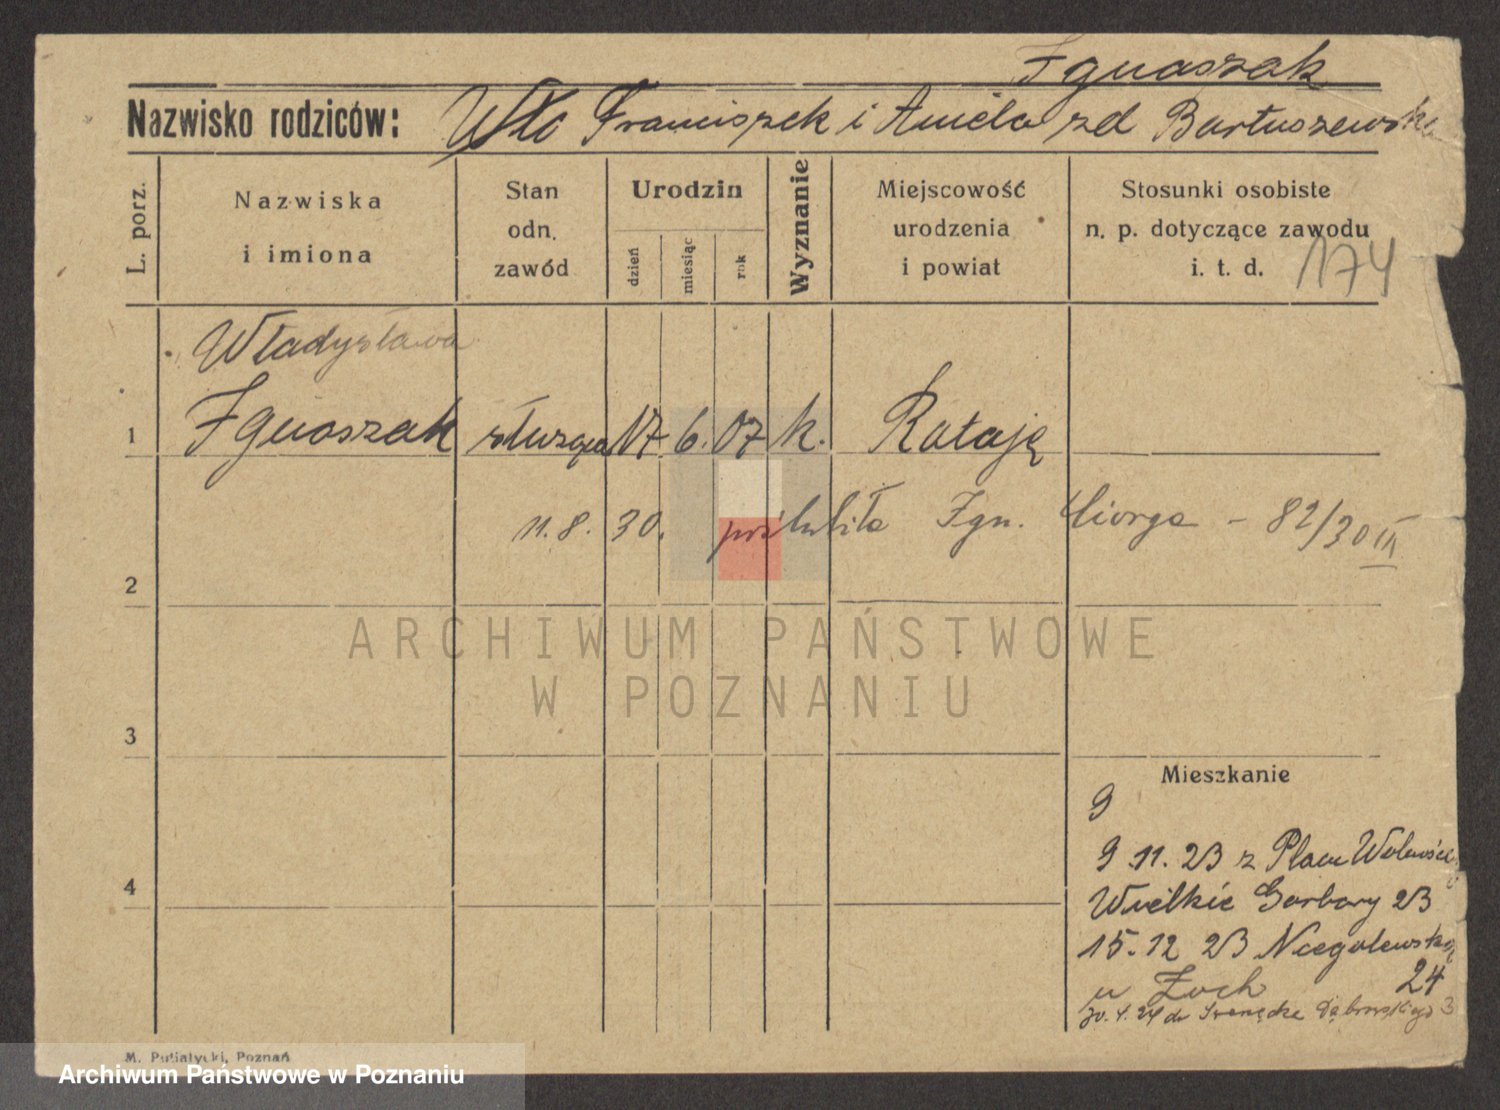 Ignaszak
Nazwisko rodziców: Franciszek i Aniela zd Bartuszewska
L. porz.
Nazwiska
i imiona
Stan
odn.
zawód
Urodzin
dzień
miesiąc
rok
Wyznanie
Miejscowość
urodzenia
i powiat
Stosunki osobiste
n. p. dotyczące zawodu
i. t. d.
174
Władysława
1 Ignaszak służąca 17 6. 07 k. Rataje
11. 8. 30. poślubiła Ign. - 82/30 III
2
ARCHIWUM PAŃSTWOWE
W POZNANIU
3
Mieszkanie
9
9.11. 23 z Placu Wolności
4
Wielkie Garbary 23
15.12 23 Niegolewskich
24
u Zoch
30.4.24 do Dąbrowskiego 3
M. Putiatycki, Poznań
Archiwum Państwowe w Poznaniu